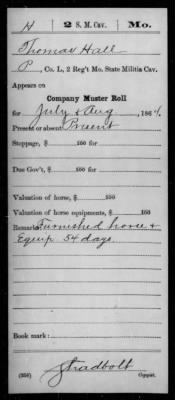 H 2 S. M. Cav. Mo.
Thomas Hall
P, Co. L, 2 Reg't Mo. State Militia Cav.
Appears on
Company Muster Roll
for July & Aug, 1864.
Present or absent Present
Stoppage, $ 100 for
Due Gov't, $ 100 for
Valuation of horse, $ 100
Valuation of horse equipments, $ 100
Remarks: Furnished horse &
Equip. 54 days.
Book mark:
(358) Copyist.